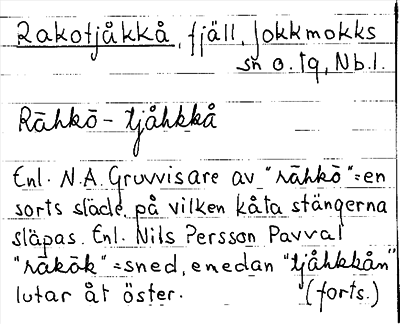 Rakotjåkkå, fjäll, Jokkmokks
sn o. tq, Nb.l.
Råhkō - tjåhkkå
Enl. N.A. Gruvvisare av "råhkō" = en
sorts släde, på vilken kåta stängerna
släpas. Enl. Nils Persson Pavval
"råkōk" = sned, enedan "tjåhkkån"
lutar åt öster. (forts.)